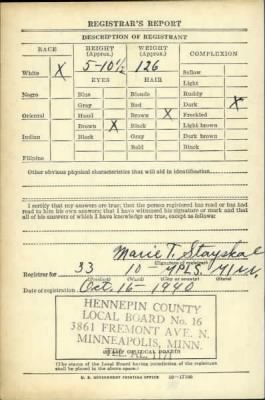 REGISTRAR'S REPORT
DESCRIPTION OF REGISTRANT
RACE HEIGHT (Approx.) WEIGHT (Approx.) COMPLEXION
White X 5-10½ 126 Sallow
EYES HAIR Light
Negro Blue Blonde Ruddy
Gray Red Dark X
Oriental Hazel Brown X Freckled
Brown X Black Light brown
Indian Black Gray Dark brown
Bald Black
Filipino
Other obvious physical characteristics that will aid in identification
I certify that my answers are true; that the person registered has read or has had
read to him his own answers; that I have witnessed his signature or mark and that
all of his answers of which I have knowledge are true, except as follows:
Marie T. Stayskal
(Signature of registrar)
Registrar for 33 10 - MPLS. MINN.
(Precinct) (Ward) (City or county) (State)
Date of registration Oct. 16 - 1940
HENNEPIN COUNTY
LOCAL BOARD No. 16
3861 FREMONT AVE. N.
MINNEAPOLIS, MINN.
(STAMP OF LOCAL BOARD)
(The stamp of the Local Board having jurisdiction of the registrant
shall be placed in the above space.)
U. S. GOVERNMENT PRINTING OFFICE 16-17105